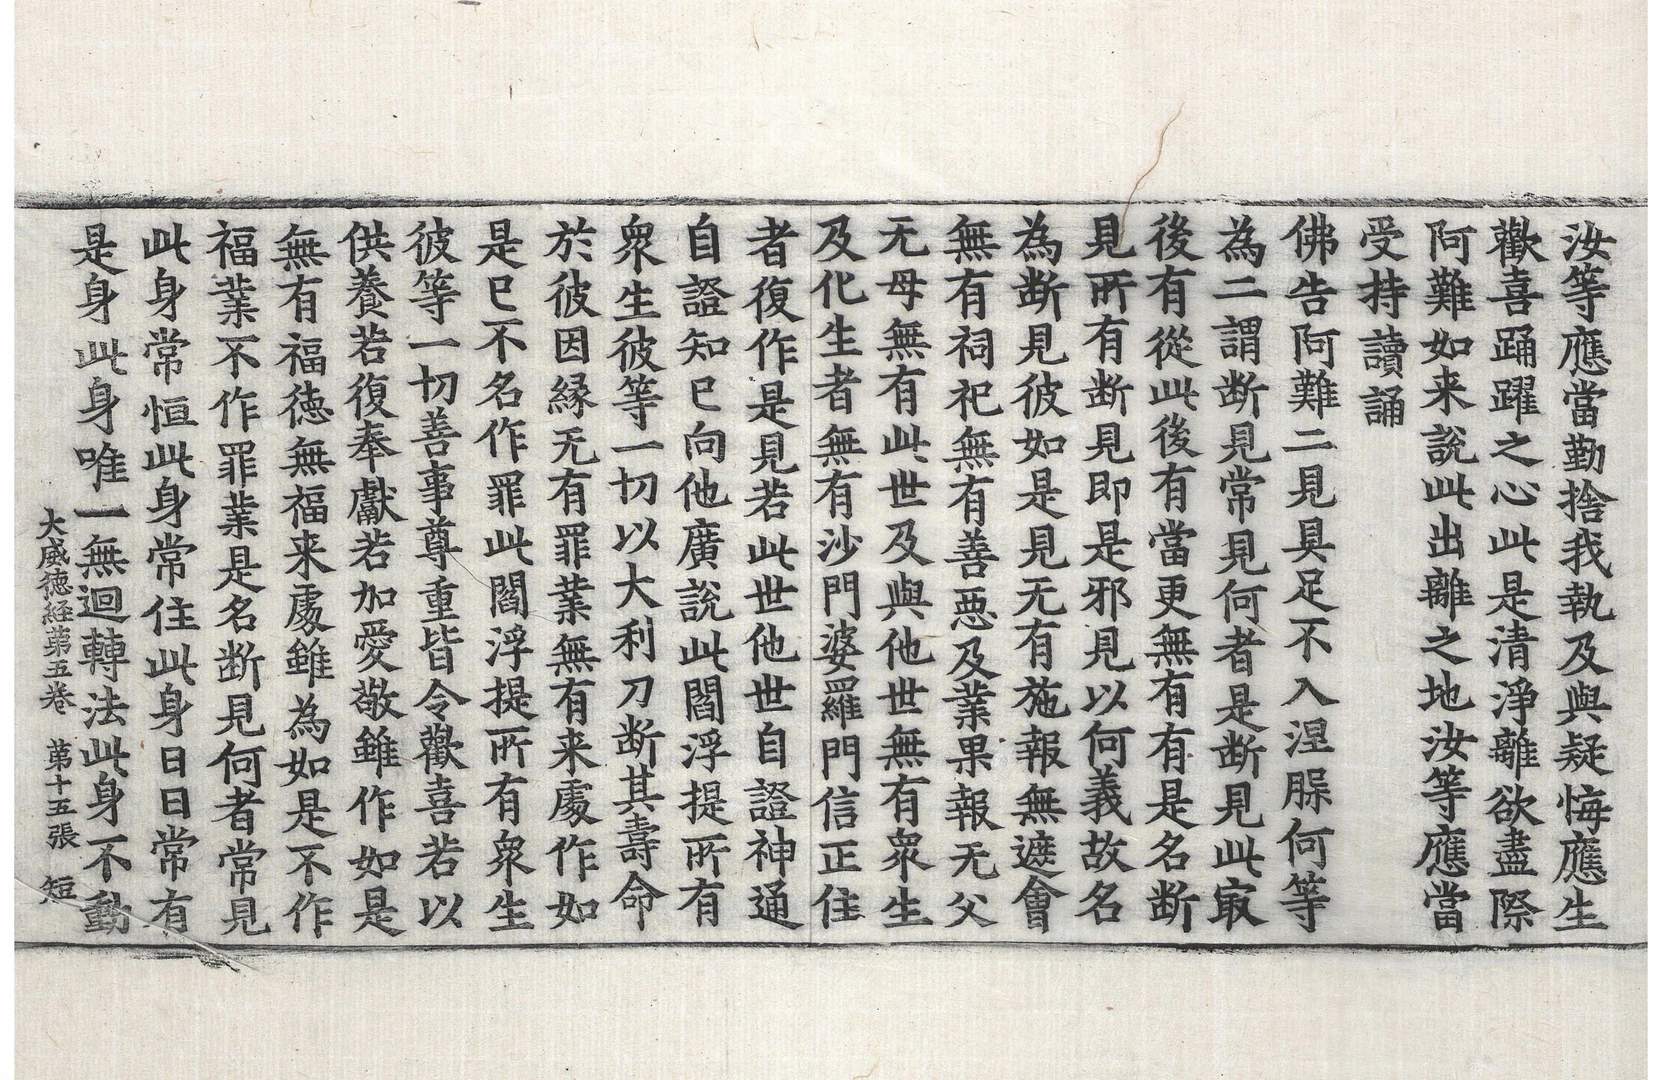 汝等應當勤捨我執及與疑悔應生
歡喜踊躍之心此是清淨離欲盡際
阿難如来說此出離之地汝等應當
受持讀誦
佛告阿難二見具足不入涅腺何等
為二謂断見常見何者是断見此㝡
後有從此後有當更無有有是名断
見所有断見即是邪見以何義故名
為断見彼如是見无有施報無遮會
無有祠祀無有善惡及業果報无父
无母無有此世及與他世無有衆生
及化生者無有沙門婆羅門信正住
者復作是見若此世他世自證神通
自證知已向他廣說此閻浮提所有
衆生彼等一切以大利刀断其壽命
於彼因縁无有罪業無有来處作如
是已不名作罪此閻浮提所有衆生
彼等一切善事尊重皆令歡喜若以
供養若復奉獻若加愛敬雖作如是
無有福徳無福来處雖為如是不作
福業不作罪業是名断見何者常見
此身常恒此身常住此身日日常有
是身此身唯一無迴轉法此身不動
大威徳経第五卷 第十五張 短